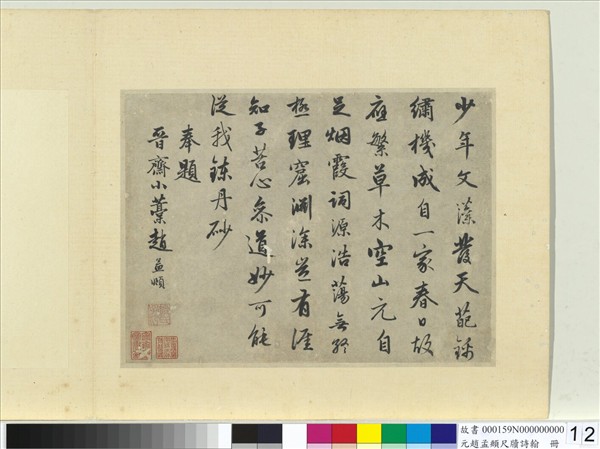 少年文藻發天葩錦
繡機成自一家春日故
應繁草木空山元自
足烟霞詞源浩蕩無終
極理窟淵深豈有涯
知子苦心參道妙可能
從我鍊丹砂
奉題
晉齋小藁趙孟頫
故書 000159N000000000
元趙孟頫尺牘詩翰 冊
12